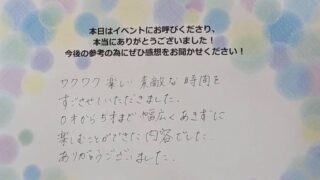 本日はイベントにお呼びくださり、
本当にありがとうございました！
今後の参考の為にぜひ感想をお聞かせください！
ワクワク楽しい素敵な時間を
すごさせていただきました。
0才から5才まで幅広くあきずに
楽しむことができた内容でした。
ありがとうございました。